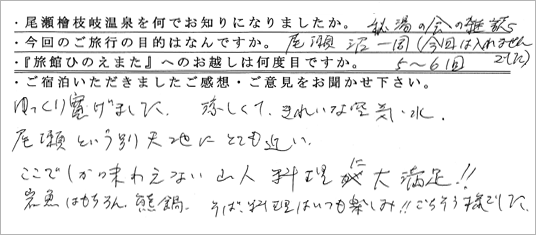 ・尾瀬檜枝岐温泉を何でお知りになりましたか。 秘湯の会の雑誌
・今回のご旅行の目的はなんですか。 尾瀬沼一周(今回は入れませんでした)
・『旅館ひのえまた』へのお越しは何度目ですか。 5〜6回
・ご宿泊いただきましたご感想・ご意見をお聞かせ下さい。
ゆっくり寛げました。 涼しくて、きれいな空気・水。
尾瀬という別天地にとても近い。
ここでしか味わえない山人料理に大満足!!
岩魚はもちろん、熊鍋、そば、料理はいつも楽しみ!!ごちそう様でした。